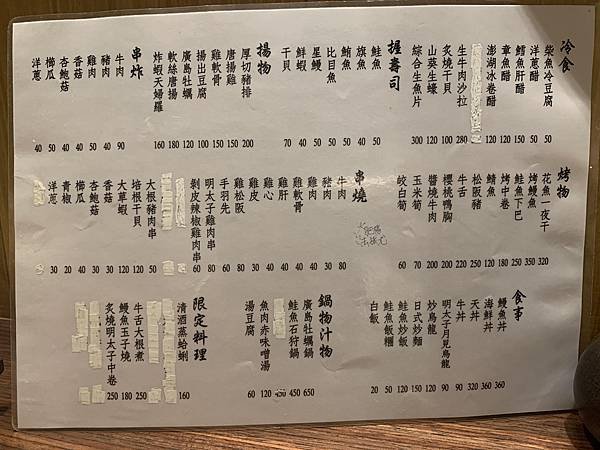 冷食
柴魚冷豆腐 50
洋蔥醋 50
鱈魚肝醋 150
章魚醋 120
澎湖冰卷醋 120
生牛肉沙拉 280
炙燒干貝 100
山葵生蠔 120
綜合生魚片 300
握壽司
鮭魚 50
旗魚 40
鮪魚 50
比目魚 50
星鰻 50
鮮蝦 40
干貝 70
揚物
厚切豬排 200
唐揚雞 150
雞軟骨 150
揚出豆腐 100
廣島牡蠣 180
軟絲唐揚 120
炸蝦天婦羅 160
串炸
牛肉 90
豬肉 40
雞肉 50
香菇 40
杏鮑菇 50
櫛瓜 50
洋蔥 40
烤物
花魚一夜干 320
烤鰻魚 350
鮭魚下巴 250
烤中卷 180
鯖魚 120
松阪豬 250
牛舌 220
櫻桃鴨胸 200
醬燒牛肉 200
玉米筍 70
皎白筍 60
串燒
牛肉 80
豬肉 30
雞肉 40
雞軟骨 40
雞肝 40
雞心 40
雞皮 40
雞松阪 60
手羽先 80
明太子雞肉串 80
剝皮辣椒雞肉串 60
大根豬肉串 50
培根干貝 120
大草蝦 120
香菇 30
杏鮑菇 40
櫛瓜 30
青椒 20
洋蔥 30
食事
鰻魚丼 360
海鮮丼 360
天丼 320
牛丼 90
明太子月見烏龍 90
炒烏龍 120
日式炒麵 150
鮭魚炒飯 120
鮭魚飯糰 50
白飯 20
鍋物汁物
廣島牡蠣鍋 650
鮭魚石狩鍋 450
魚肉赤味噌湯 120
湯豆腐 60
限定料理
清酒蒸蛤蜊 160
牛舌大根煮 250
鰻魚玉子燒 180
炙燒明太子中卷 250